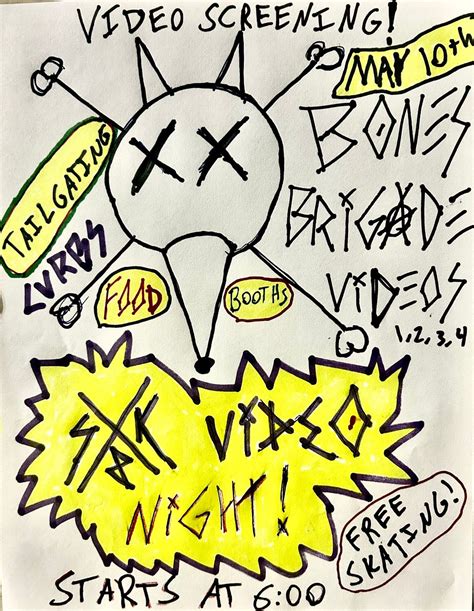 VIDEO SCREENING!
MAY 10th
BONES
BRiGADE
ViDEOS
1,2,3,4
TAILGATING
CVRBS
FOOD
BOOTHS
ViDEO
NiGHT!
FREE
SKATING!
STARTS AT 6:00